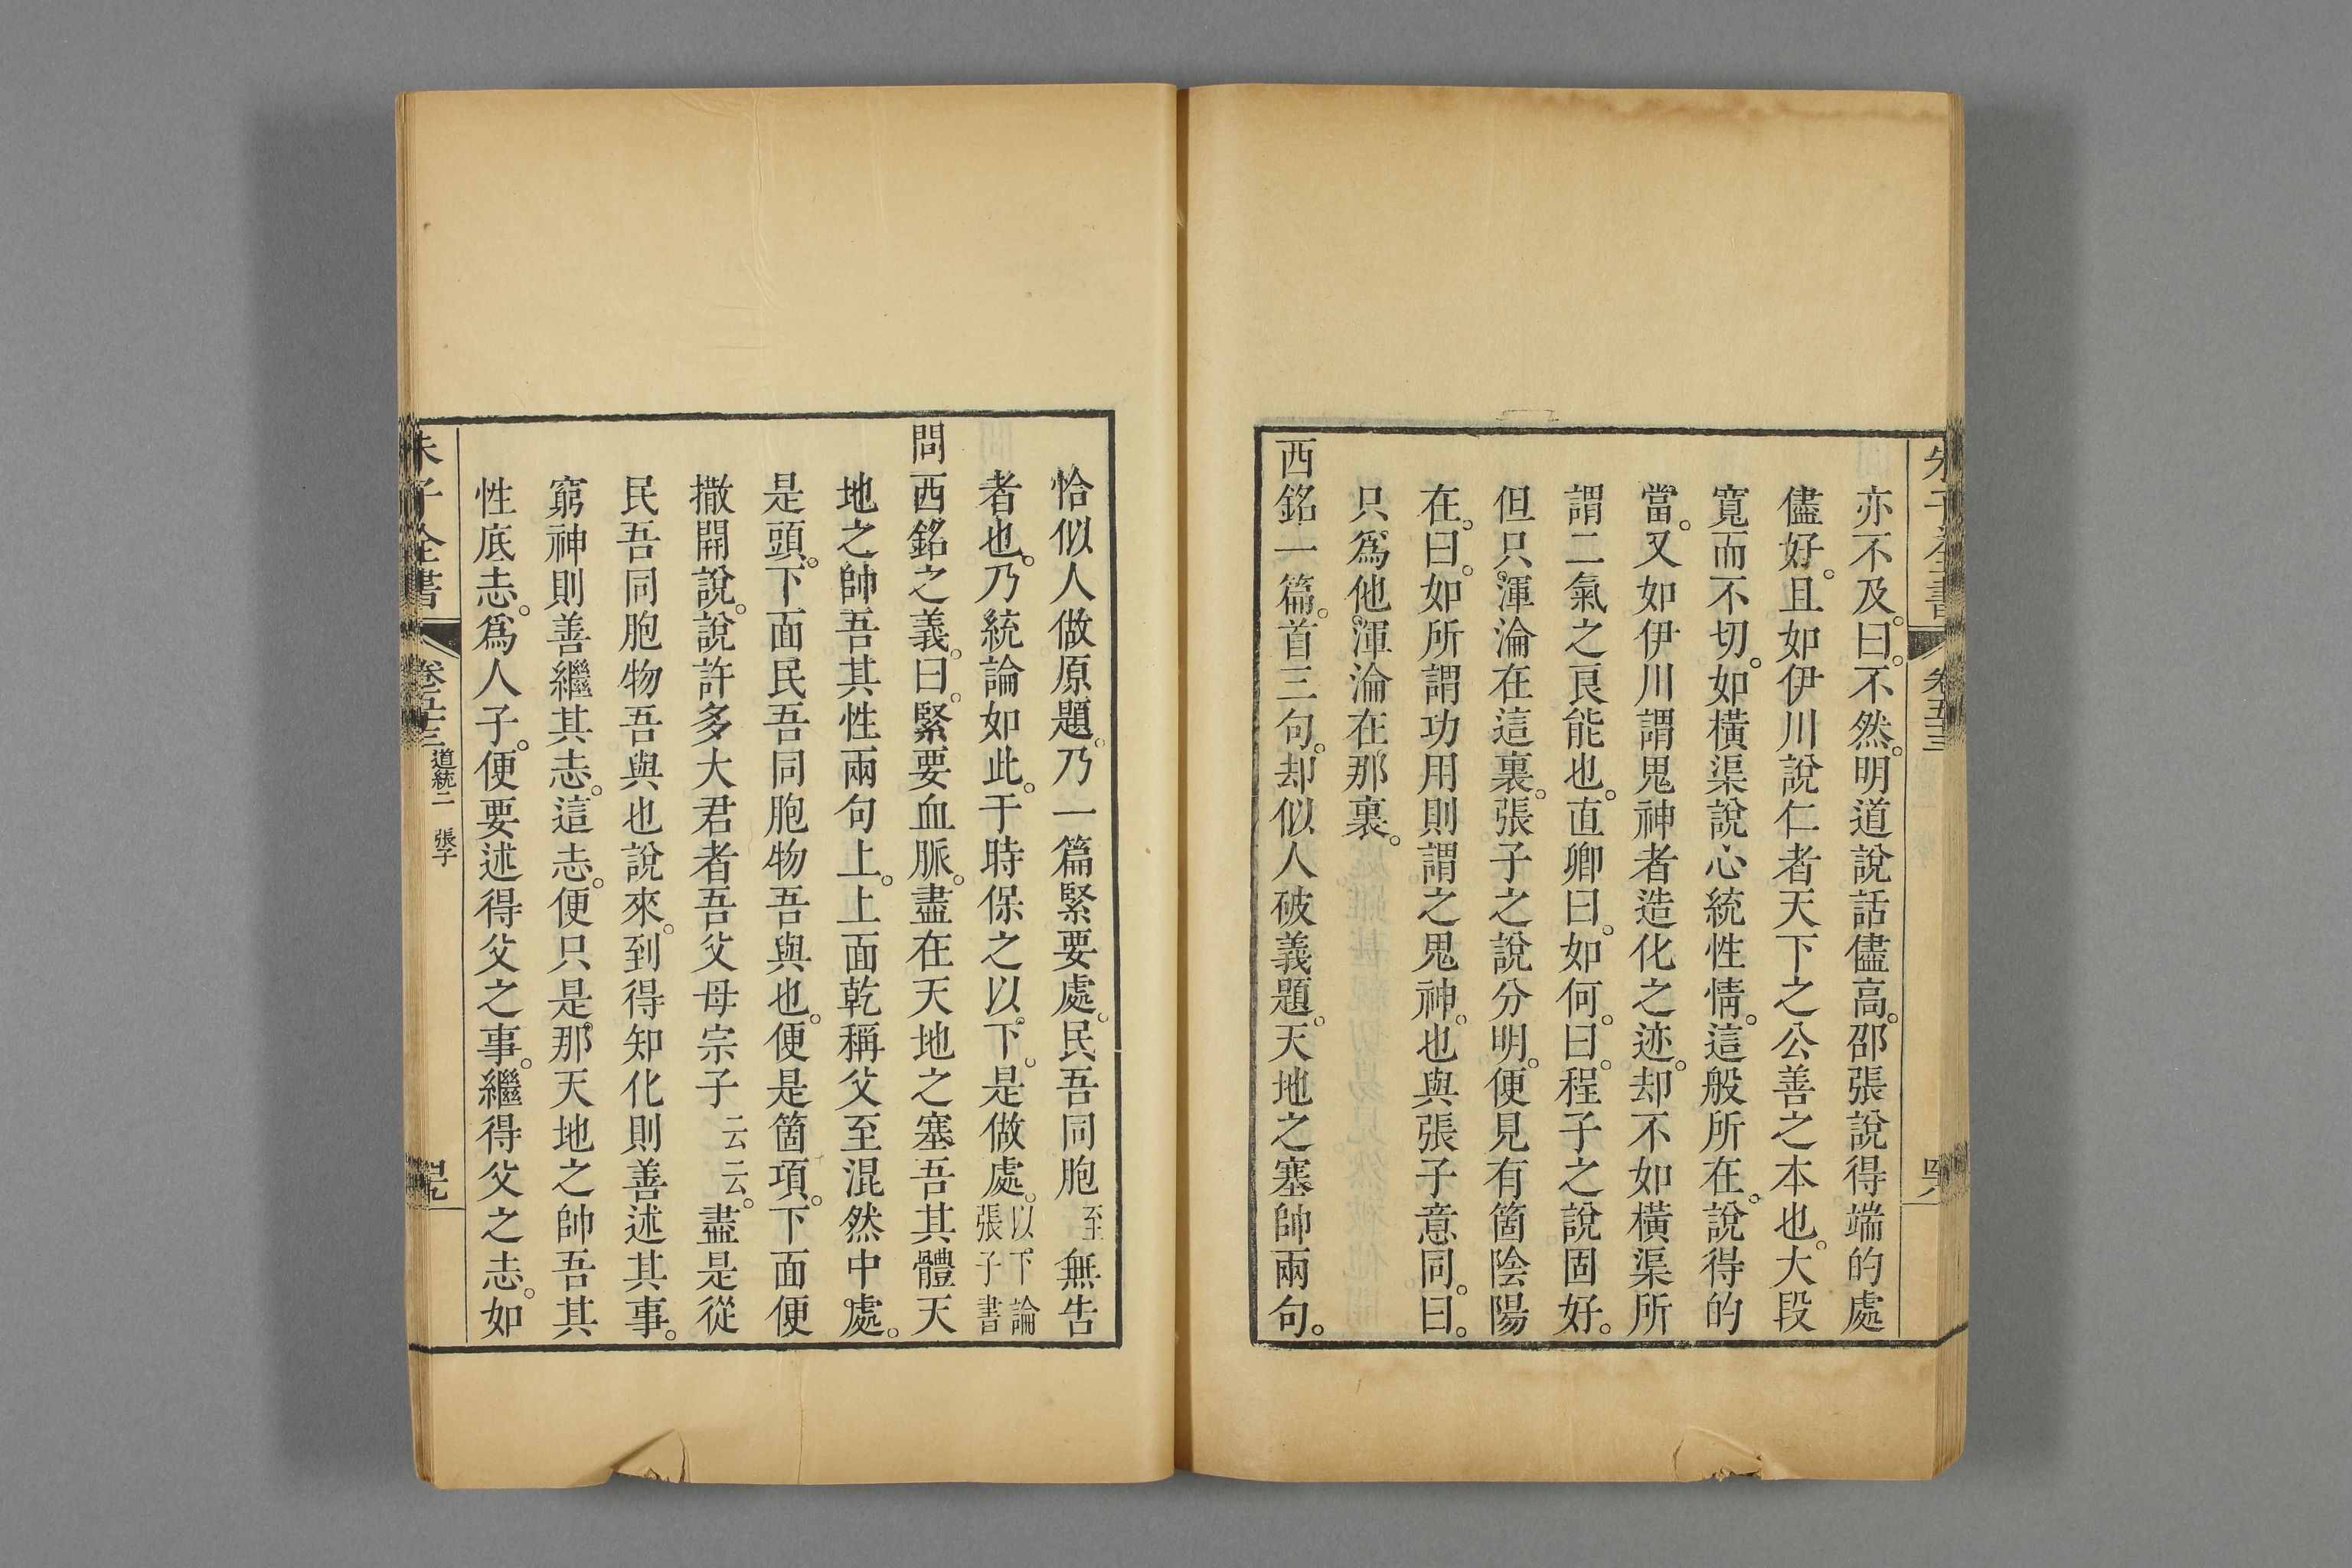 亦不及。曰。不然。明道說話儘高。邵張說得端的處
儘好。且如伊川說仁者天下之公善之本也。大段
寬而不切。如橫渠說心統性情。這般所在。說得的
當。又如伊川謂鬼神者造化之迹。却不如橫渠所
謂二氣之良能也。直卿曰。如何。曰。程子之說固好。
但只渾淪在這裏。張子之說分明。便見有箇陰陽
在。曰。如所謂功用則謂之鬼神。也與張子意同。曰。
只爲他渾淪在那裏。
西銘一篇。首三句。却似人破義題。天地之塞帥兩句。
恰似人做原題。乃一篇緊要處。民吾同胞至無告
者也。乃統論如此。于時保之以下。是做處。以下論張子書
問西銘之義。曰。緊要血脈。盡在天地之塞吾其體天
地之帥吾其性兩句上。上面乾稱父至混然中處。
是頭。下面民吾同胞物吾與也。便是箇項。下面便
撒開說。說許多大君者吾父母宗子云云。盡是從
民吾同胞物吾與也說來。到得知化則善述其事。
窮神則善繼其志。這志。便只是那天地之帥吾其
性底志。爲人子。便要述得父之事。繼得父之志。如
朱子全書 卷五十三 道統二 張子